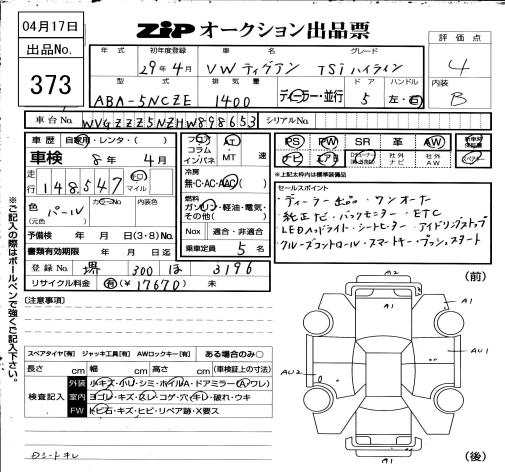 04月17日
出品No.
373
ZiP オークション出品票
評価点
4
内装
B
年式 初年度登録 車名 グレード
29年4月 VWティグアン TSiハイライン
型式 排気量 ドア ハンドル
ABA-5NCZE 1400 ディーラー・並行 5 左・右
車台No. WVGZZZ5NZHW898653 シリアルNo.
車歴 自家用・レンタ・( )
車検 8年4月
走行 148,547 キロ マイル
色 パール (元色) カラーNo. 内装色
予備検 年 月 日(3・8)No.
書類有効期限 年 月 日迄
登録No. 堺 300 ほ 3196
リサイクル料金 有(¥17670) 未
フロア コラム インパネ AT・MT 速
冷房
無・C・AC・AAC
燃料
ガソリン・軽油・電気・その他( )
Nox 適合・非適合
乗車定員 5 名
PS PW SR 革 AW
ナビ エアB 社外ナビ 社外AW
↑上記太枠内は標準装備品
セールスポイント
・ディーラー出品・ワンオーナー
・純正ナビ・バックモニター・ETC
・LEDヘッドライト・シートヒーター・アイドリングストップ
・クルーズコントロール・スマートキー・プッシュスタート
※ご記入の際はボールペンで強くご記入下さい。
(注意事項)
スペアタイヤ[有] ジャッキ工具[有] AWロックキー[有] ある場合のみ○
長さ cm 幅 cm 高さ cm (車検証上の寸法)
検査記入
外装 小キズ・小U・シミ・ホイルA・ドアミラー(A・ワレ)
室内 ヨゴレ・キズ・スレ・コゲ・穴・キレ・破れ・ウキ
FW トビ石・キズ・ヒビ・リペア跡・X要ス
Dシートキレ
(前)
A2
A1
A1
AU1
AU2
A1
(後)